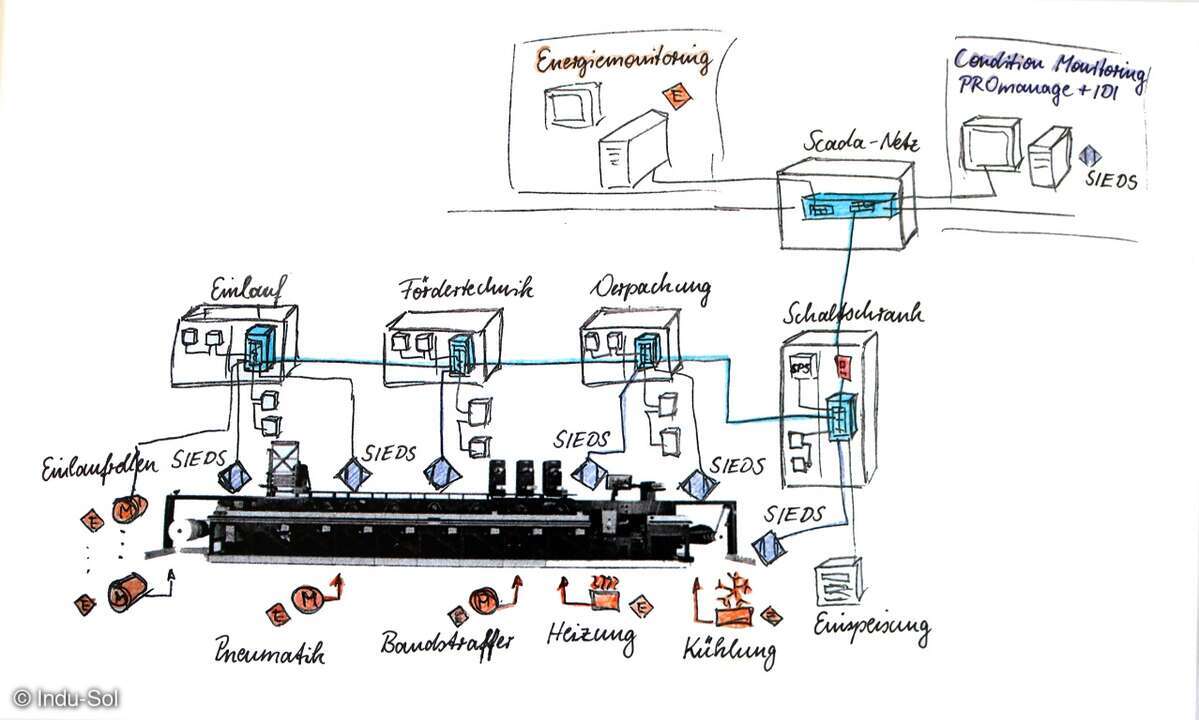 Energiemonitoring
E
Condition Monitoring
PROmanage + IDI
SIEDS
Scada-Netz
Einlauf
Fördertechnik
Verpackung
Schaltschrank
SPS
Einlaufrollen
SIEDS
SIEDS
SIEDS
SIEDS
SIEDS
E
M
E
M
E
M
E
M
E
E
Pneumatik
Bandstraffer
Heizung
Kühlung
Einspeisung
© Indu-Sol